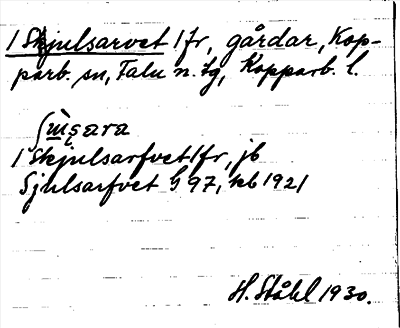 / Skjulsarvet / fr, gårdar, Kop-
parb. sn, Falu n. tg, Kopparb. l.
/ Skjulsarfvet / fr, jb
Sjulsarfvet G 97, kb 1921
H. Ståhl 1930.